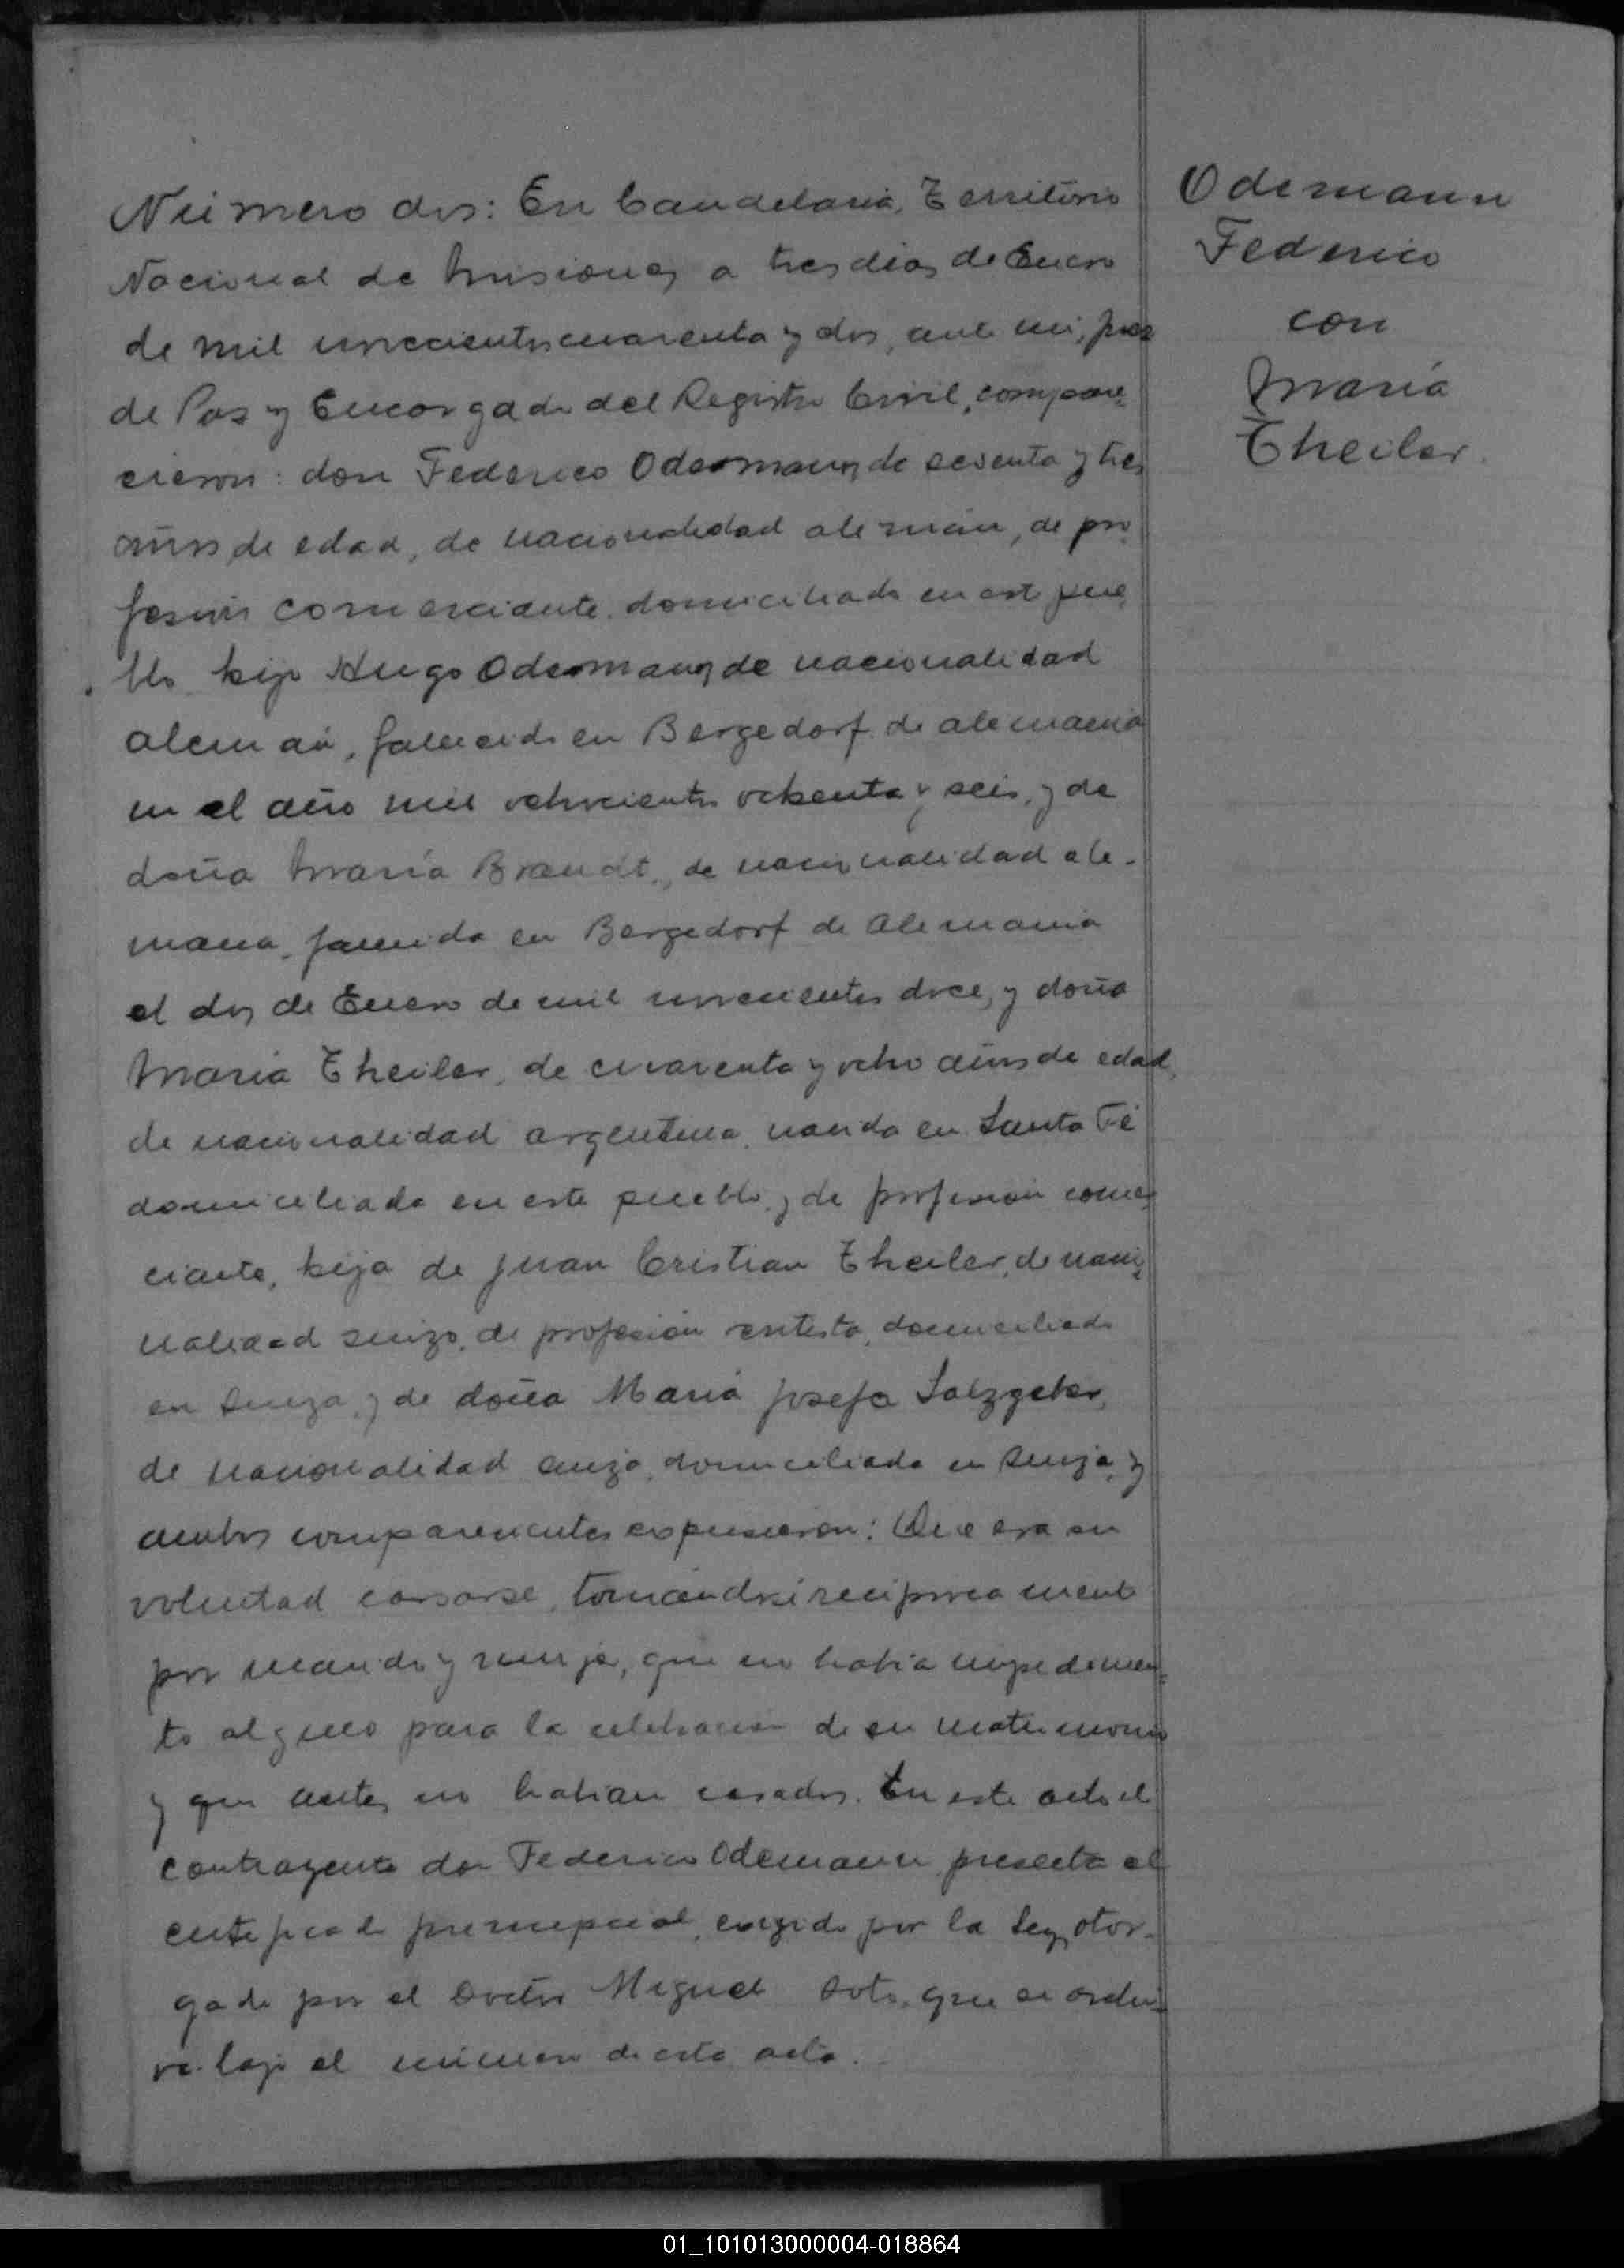 Número dos: En Candelaria, Territorio
Nacional de Misiones, a tres dias de Enero
de mil novecientos cuarenta y dos, ante mi, Juez
de Paz y Encargado del Registro Civil, compare-
cieron: don Federico Odemann, de sesenta y tres
años de edad, de nacionalidad alemán, de pro-
fesión comerciante, domiciliado en este pue-
blo, hijo Hugo Odemann, de nacionalidad
alemán, fallecido en Bergedorf de alemania
en el año mil ochocientos ochenta y seis, y de
doña María Brandt, de nacionalidad ale-
mana, fallecida en Bergedorf de Alemania
el dos de Enero de mil novecientos doce, y doña
María Theiler, de cuarenta y ocho años de edad,
de nacionalidad argentina, nacida en Santa Fé
domiciliada en este pueblo, y de profesion comer-
ciante, hija de Juan Cristian Theiler, de nacio-
nalidad suizo, de profesión rentista, domiciliado
en Suiza, y de doña María Josefa Salzgeber,
de nacionalidad suiza, domiciliada en Suiza, y
ambos comparecientes expusieron: Que era su
voluntad casarse, tomándose reciprocamente
por marido y mujer, que no habia impedimen-
to alguno para la celebración de su matrimonio
y que antes no habian casados. En este acto el
contrayente don Federico Odemann presenta el
certificado prenupcial, exigido por la Ley, otor-
gado por el Doctor Miguel Soto, que se archi-
va bajo el número de esta acta.
Odemann
Federico
con
María
Theiler.
01_101013000004-018864